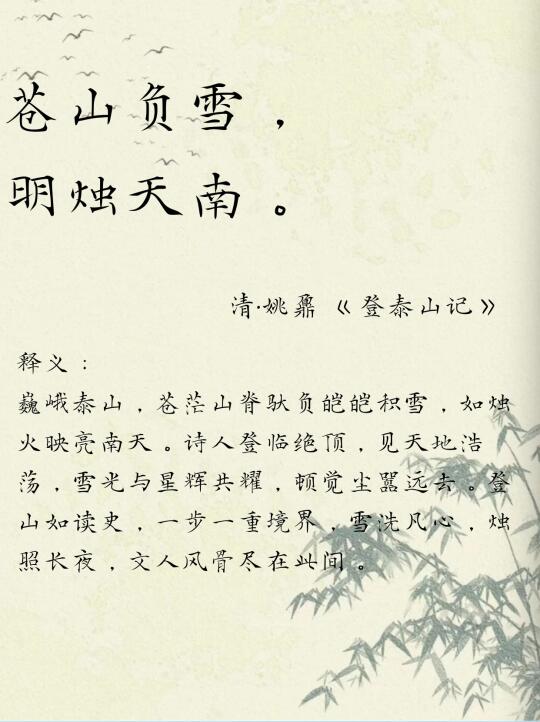 苍山负雪，
明烛天南。
清·姚鼐《登泰山记》
释义：
巍峨泰山，苍茫山脊驮负皑皑积雪，如烛
火映亮南天。诗人登临绝顶，见天地浩
荡，雪光与星辉共耀，顿觉尘嚣远去。登
山如读史，一步一重境界，雪洗凡心，烛
照长夜，文人风骨尽在此间。